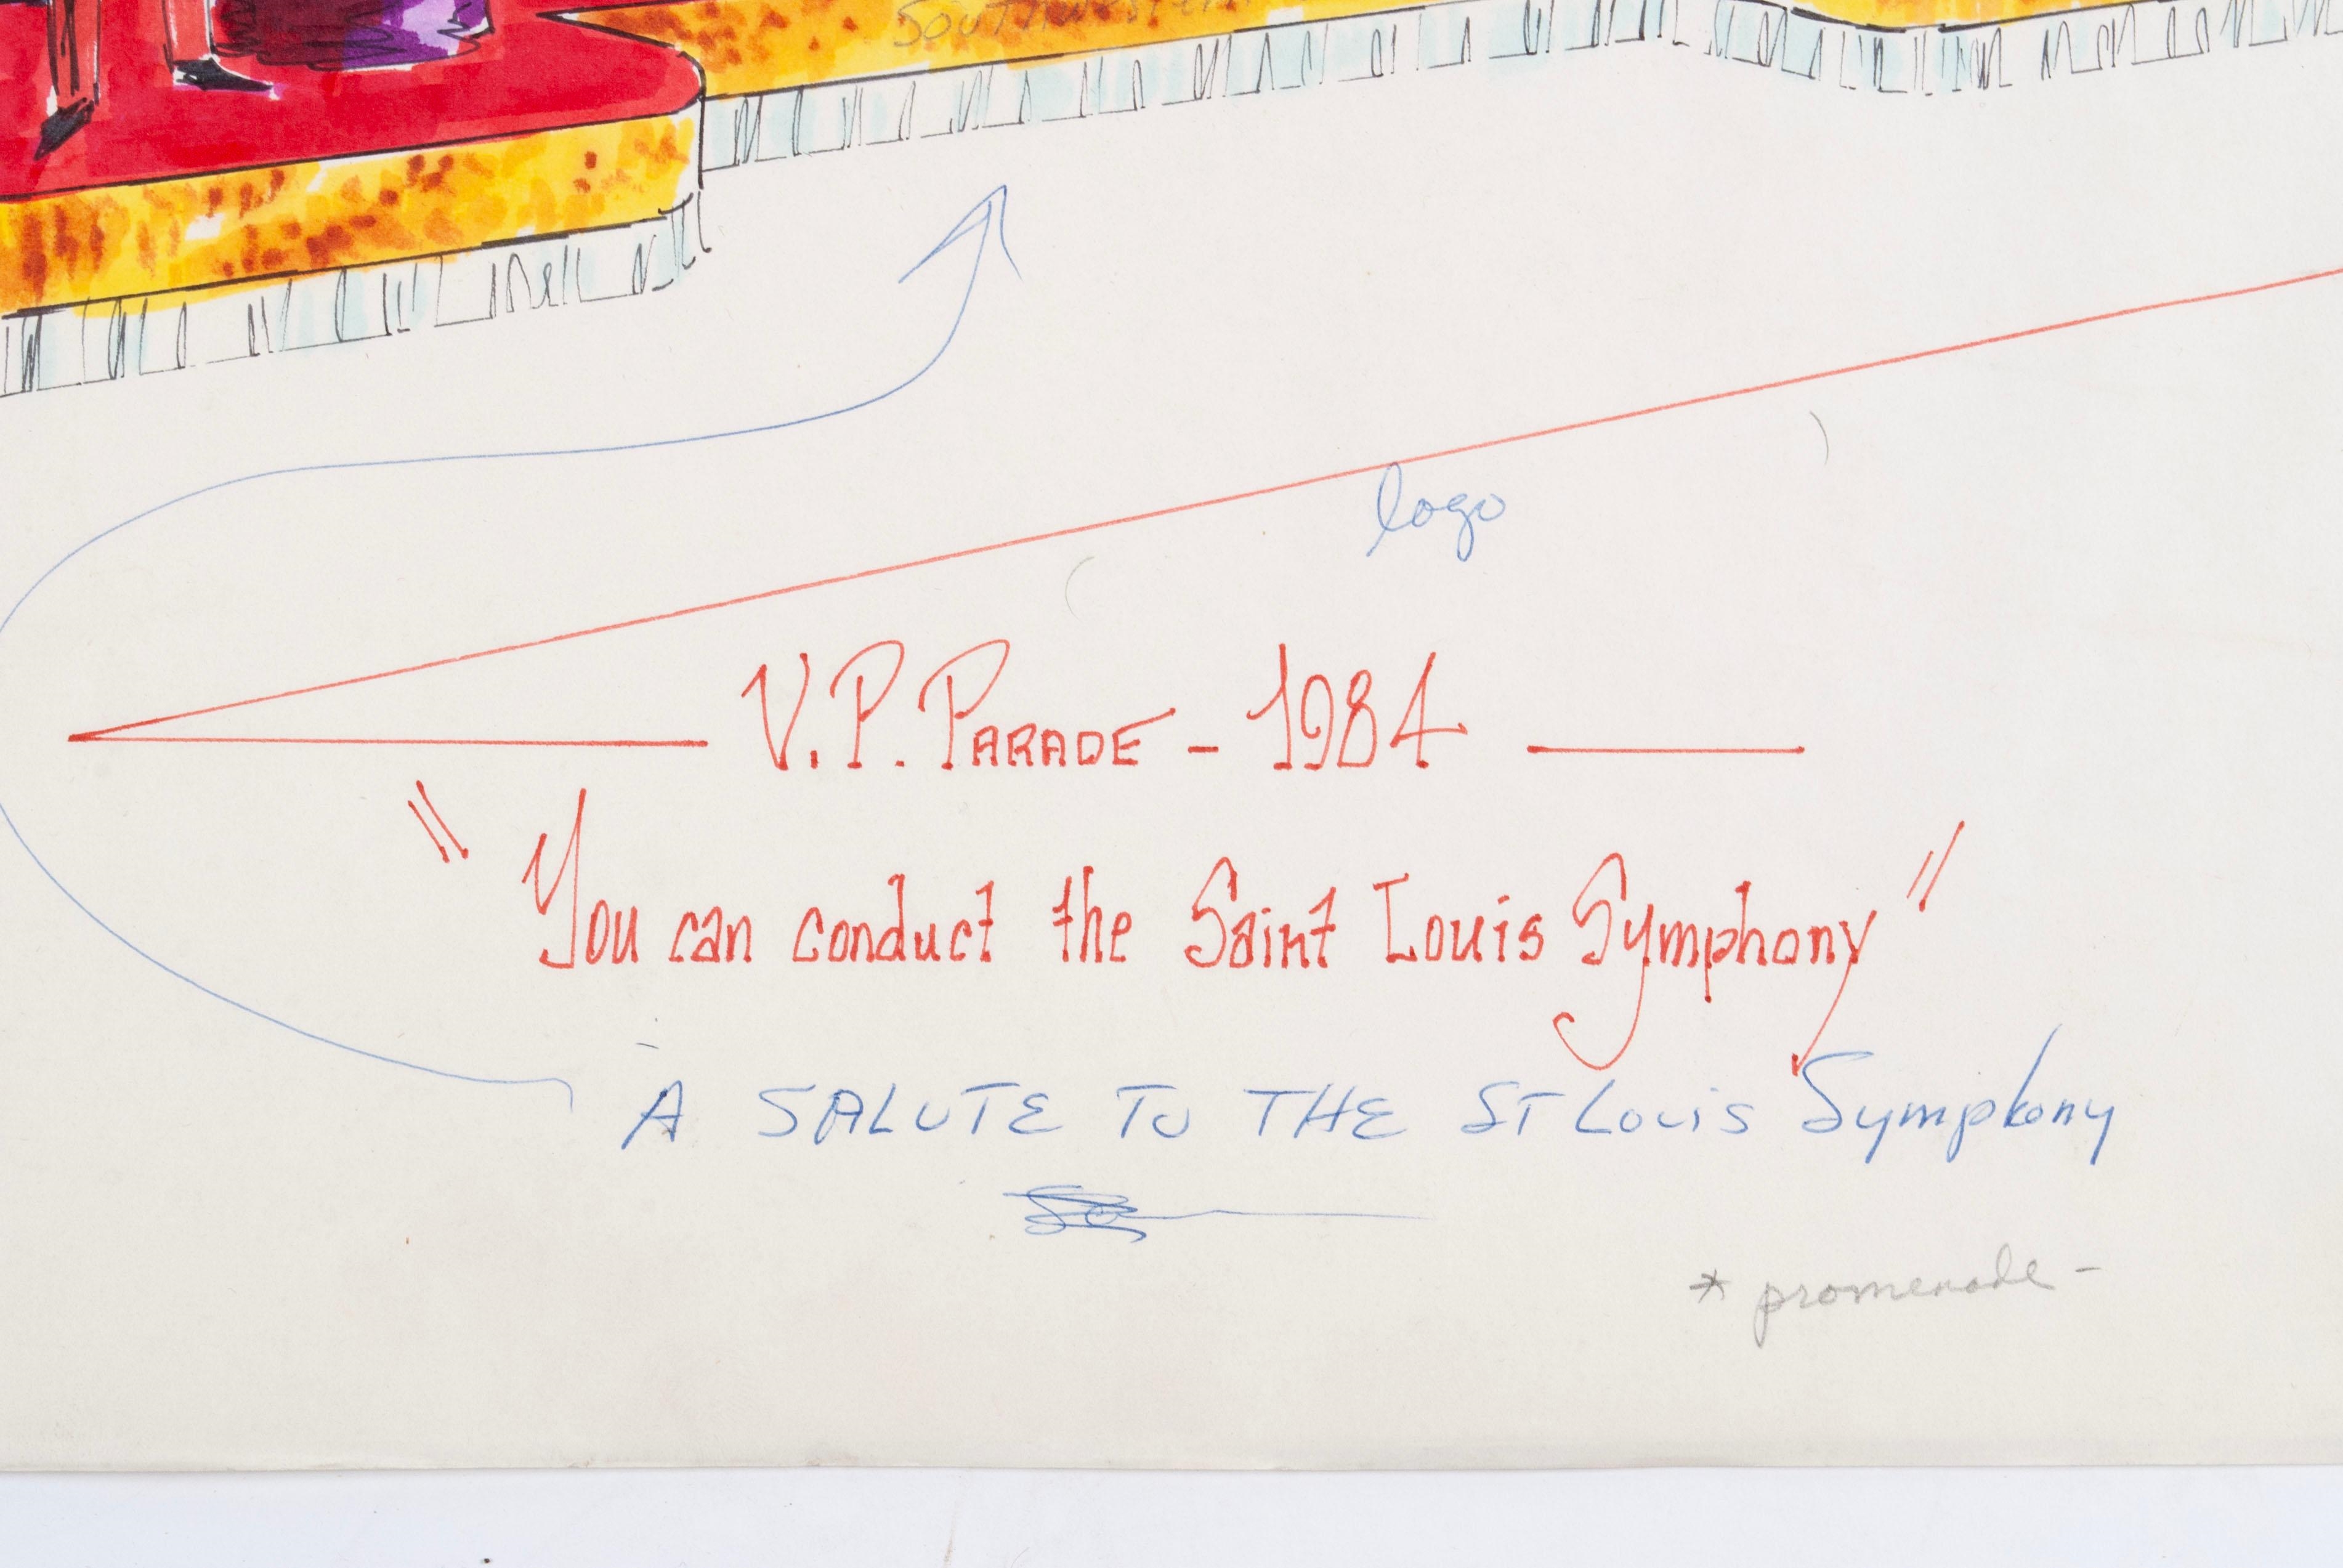 Southwestern
logo
V.P. PARADE - 1984
"You can conduct the Saint Louis Symphony"
A SALUTE TO THE ST Louis Symphony
* promenade -